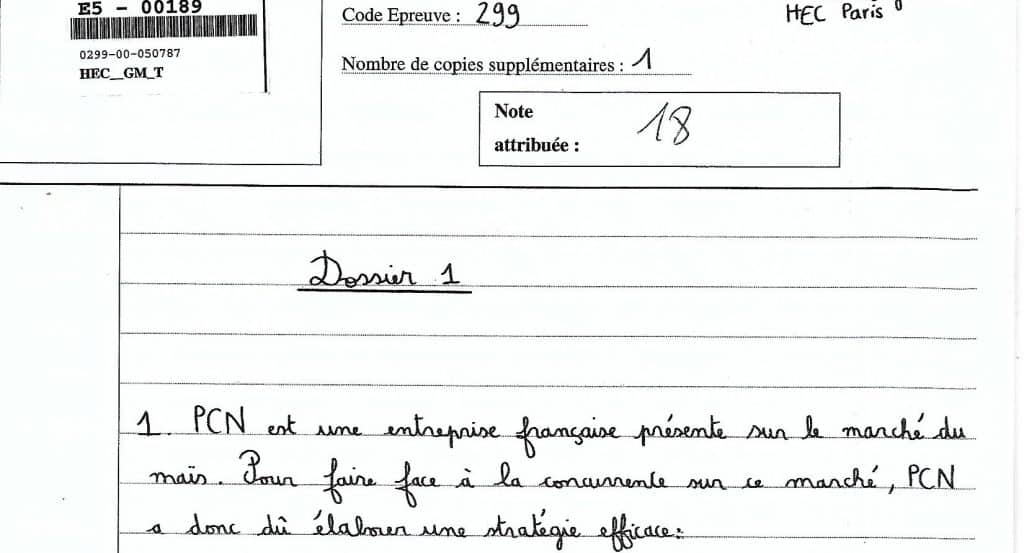 E5 - 00189
0299-00-050787
HEC__GM_T
Code Epreuve : 299
HEC Paris
Nombre de copies supplémentaires : 1
Note
attribuée :
18
Dossier 1
1. PCN est une entreprise française présente sur le marché du
maïs. Pour faire face à la concurrente sur ce marché, PCN
a donc dû élaborer une stratégie efficace: